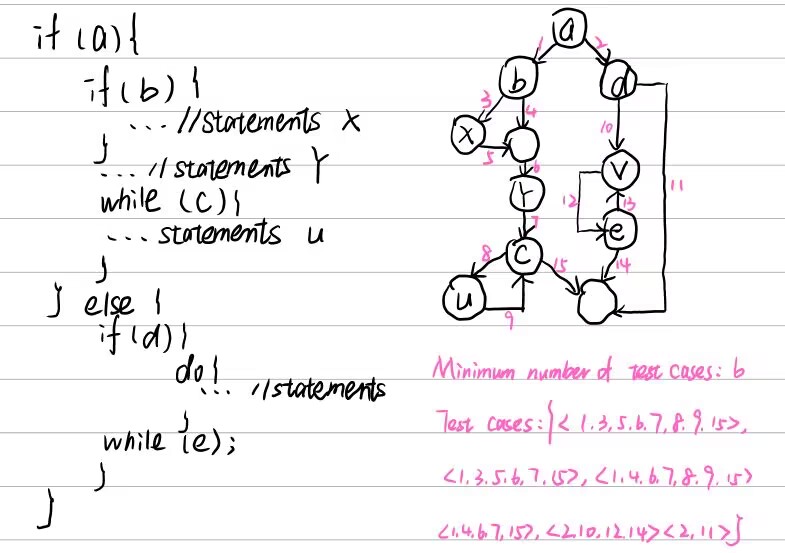 if (a) {
if (b) {
... //statements X
}
... // statements Y
while (c) {
... statements u
}
} else {
if (d) {
do {
... //statements
}
while (e);
}
}
a
1 2
b d
3 4
X
5
10
6
V
Y
12 13
11
7
e
c
8 15 14
u
9
Minimum number of test cases: 6
Test cases: {<1.3,5.6.7,8.9.15>,
<1.3.5.6,7.15>, <1.4.6.7,8.9.15>
<1.4.6.7,15>, <2.10.12.14> <2,11>}